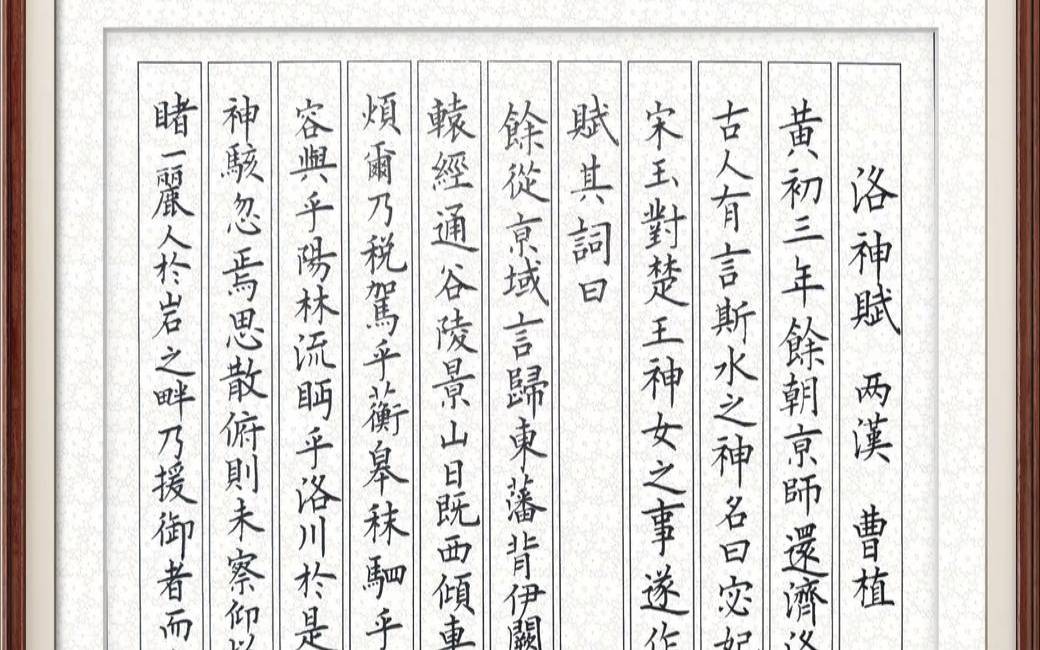 洛神賦 两漢 曹植
黃初三年餘朝京師還濟洛
古人有言斯水之神名曰宓妃
宋玉對楚王神女之事遂作
賦其詞曰
餘從京域言歸東藩背伊闕
轅經通谷陵景山日既西傾車
煩爾乃税駕乎蘅皋秣駟乎
容與乎陽林流眄乎洛川於是
神駭忽焉思散俯則未察仰以
睹一麗人於岩之畔乃援御者而